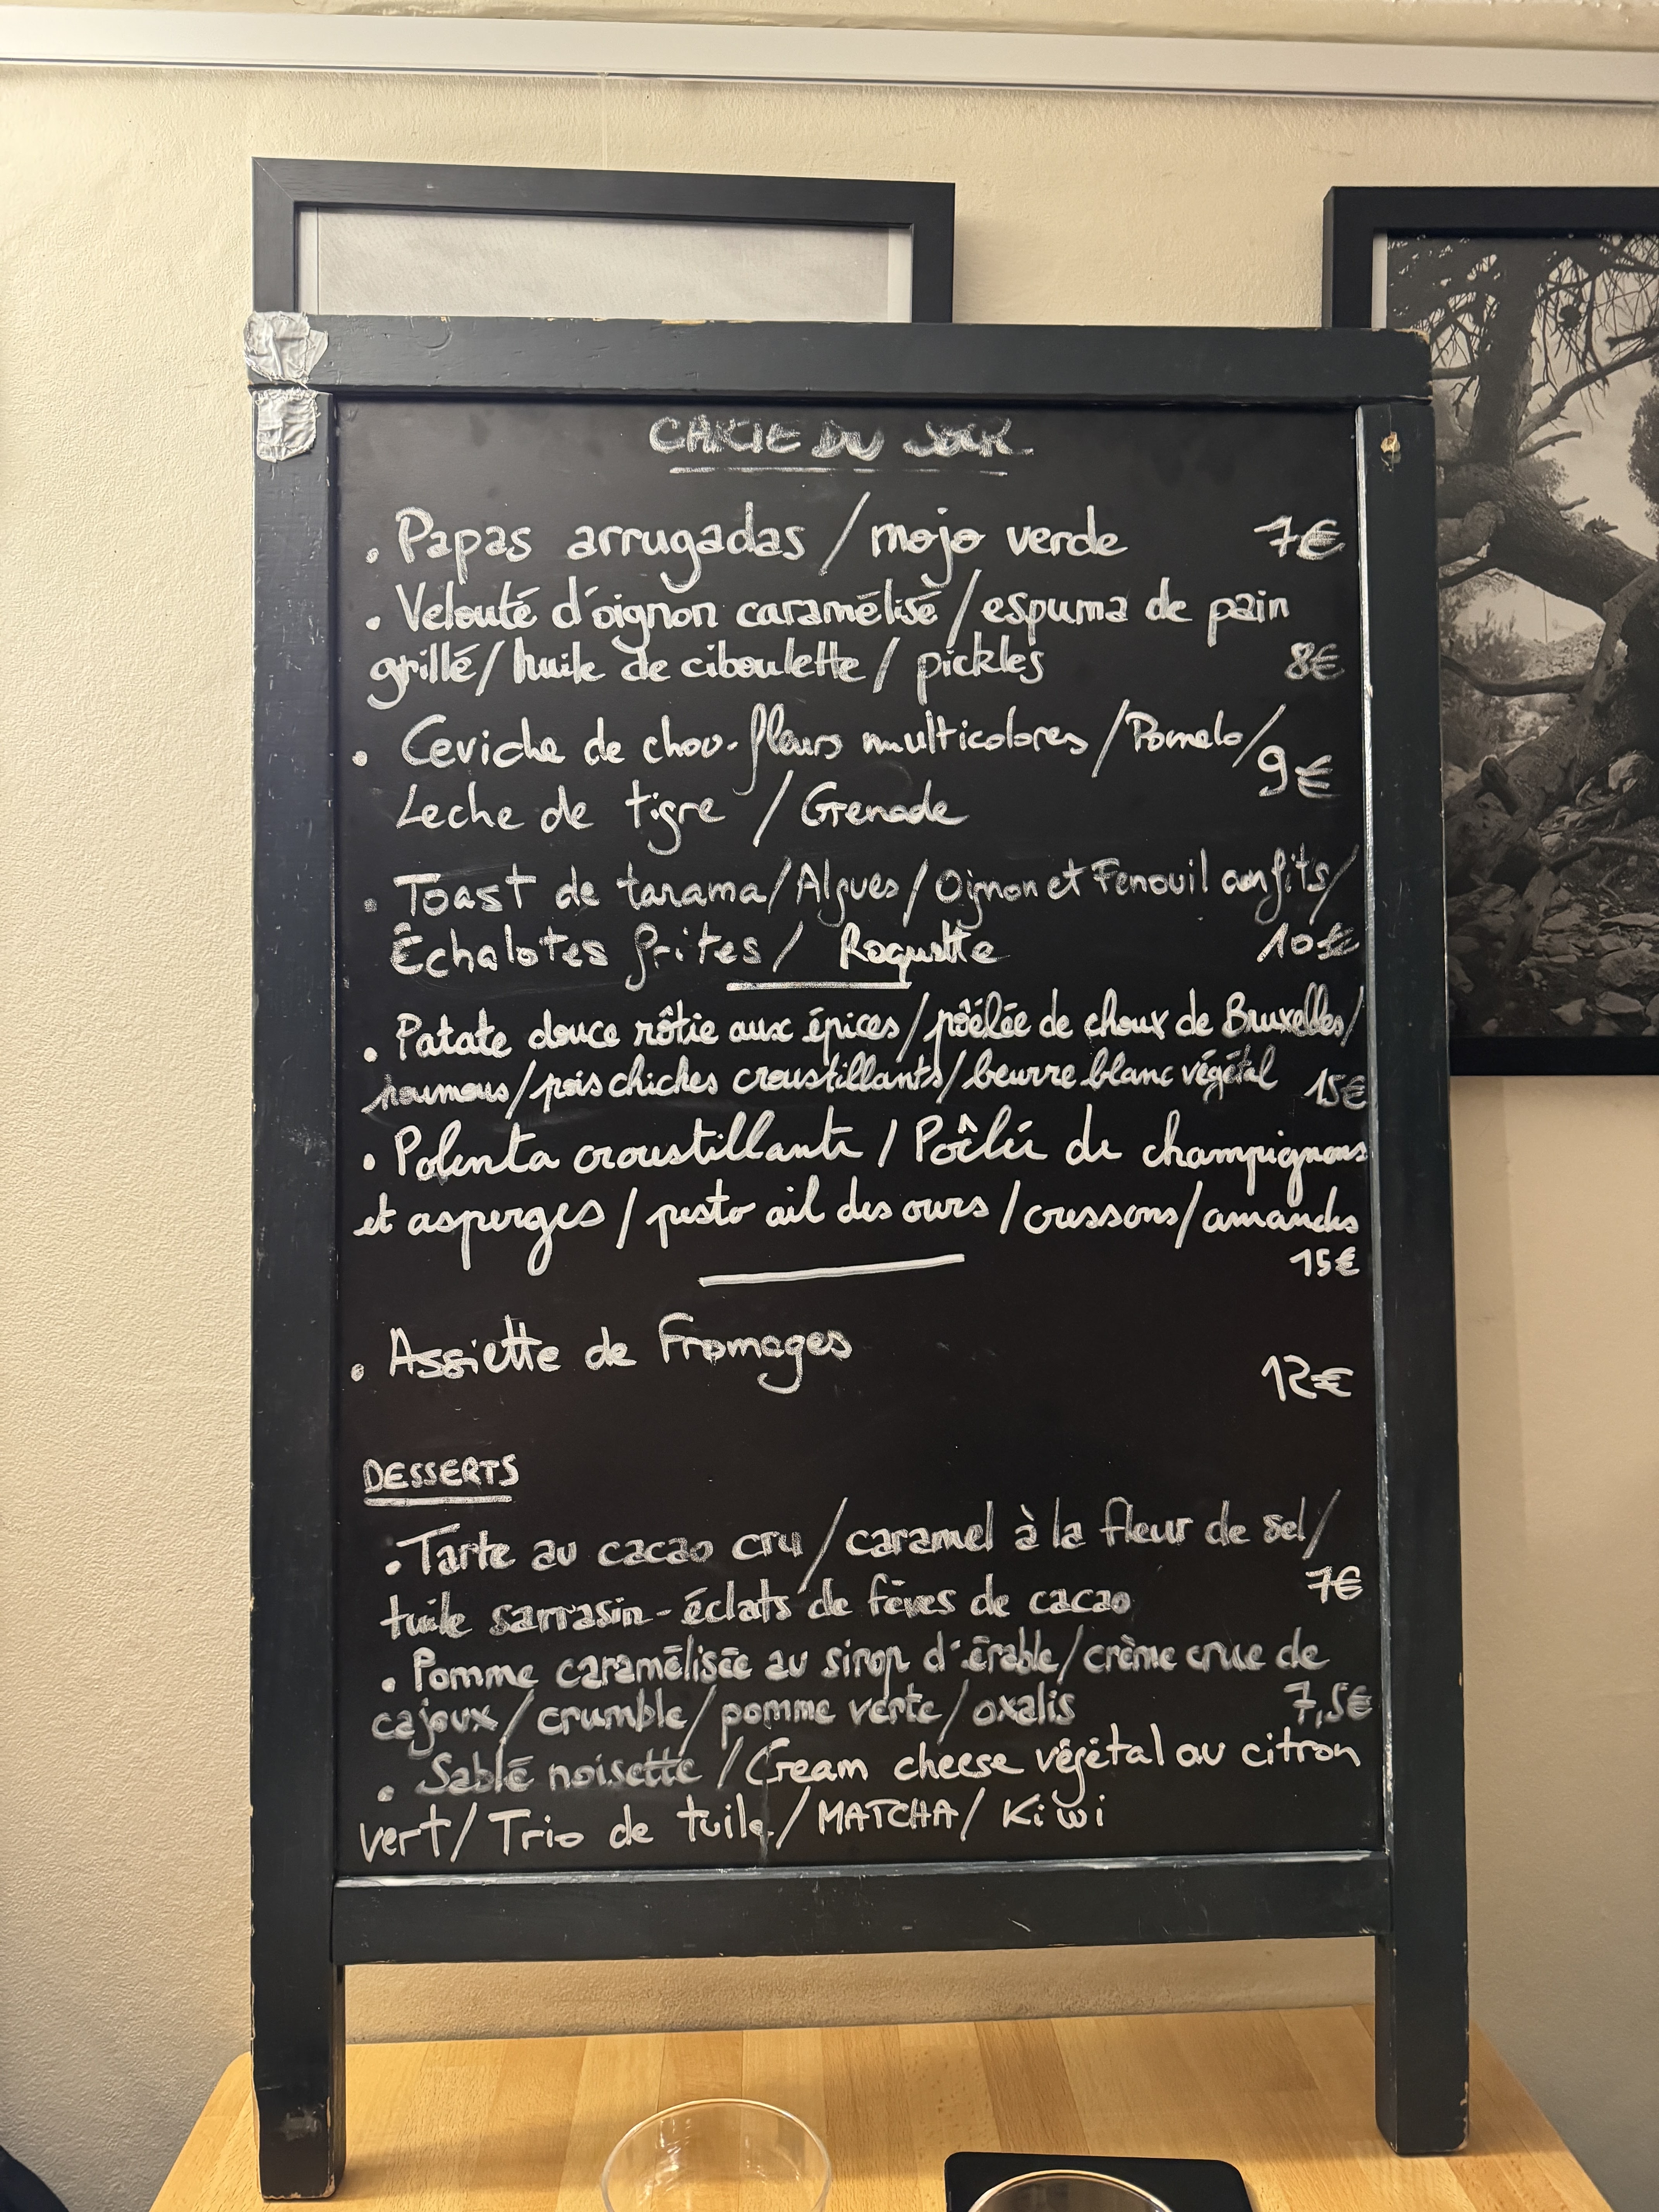 CARTE DU JOUR
. Papas arrugadas / mojo verde 7€
. Velouté d'oignon caramélisé / espuma de pain
grillé / huile de ciboulette / pickles 8€
. Ceviche de chou-fleurs multicolores / Pomelo /
Leche de tigre / Grenade 9€
. Toast de tarama / Algues / Oignon et Fenouil confits /
Échalotes frites / Roquette 10€
. Patate douce rôtie aux épices / pöêlée de choux de Bruxelles /
houmous / pois chiches croustillants / beurre blanc végétal 15€
. Polenta croustillante / Poêlée de champignons
et asperges / pesto ail des ours / cressons / amandes
15€
. Assiette de Fromages
12€
DESSERTS
. Tarte au cacao cru / caramel à la fleur de sel /
7€
tuile sarrasin - éclats de fèves de cacao
. Pomme caramélisée au sirop d'érable / crème crue de
cajoux / crumble / pomme verte / oxalis 7,5€
. Sablé noisette / Cream cheese végétal au citron
vert / Trio de tuile / MATCHA / Kiwi